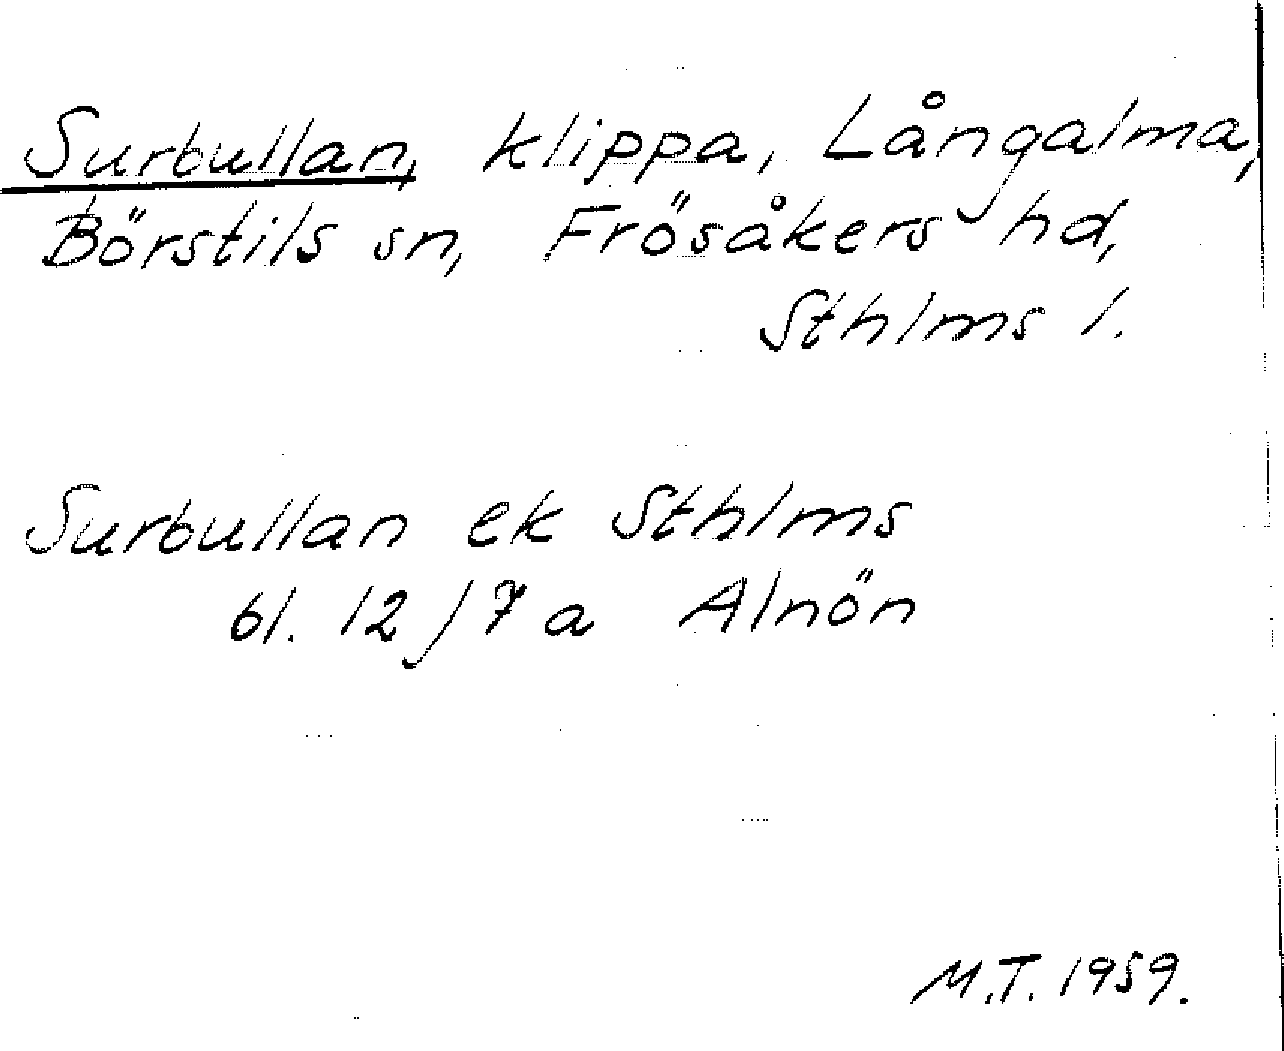 Surbullan, klippa, Långalma,
Börstils sn, Frösåkers hd,
Sthlms l.
Surbullan ek Sthlms
bl. 12/7a Alnön
M.T. 1959.